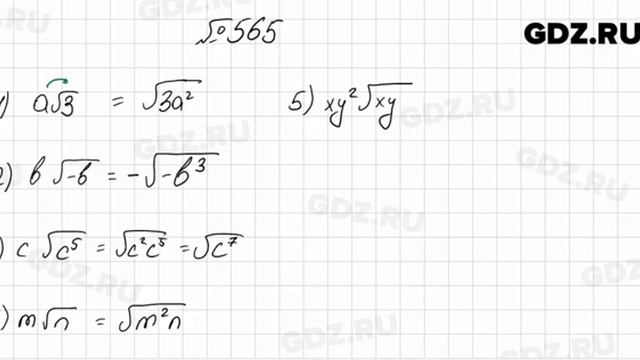 №565
GDZ.RU
1) a√3 = √3a²
5) xy²√xy
2) b√-b = -√-b³
) c√c⁵ = √c²c⁵ = √c⁷
) m√n = √m²n
GDZ.RU
GDZ.RU
GDZ.RU
GDZ.RU
GDZ.RU
GDZ.RU
GDZ.RU
GDZ.RU